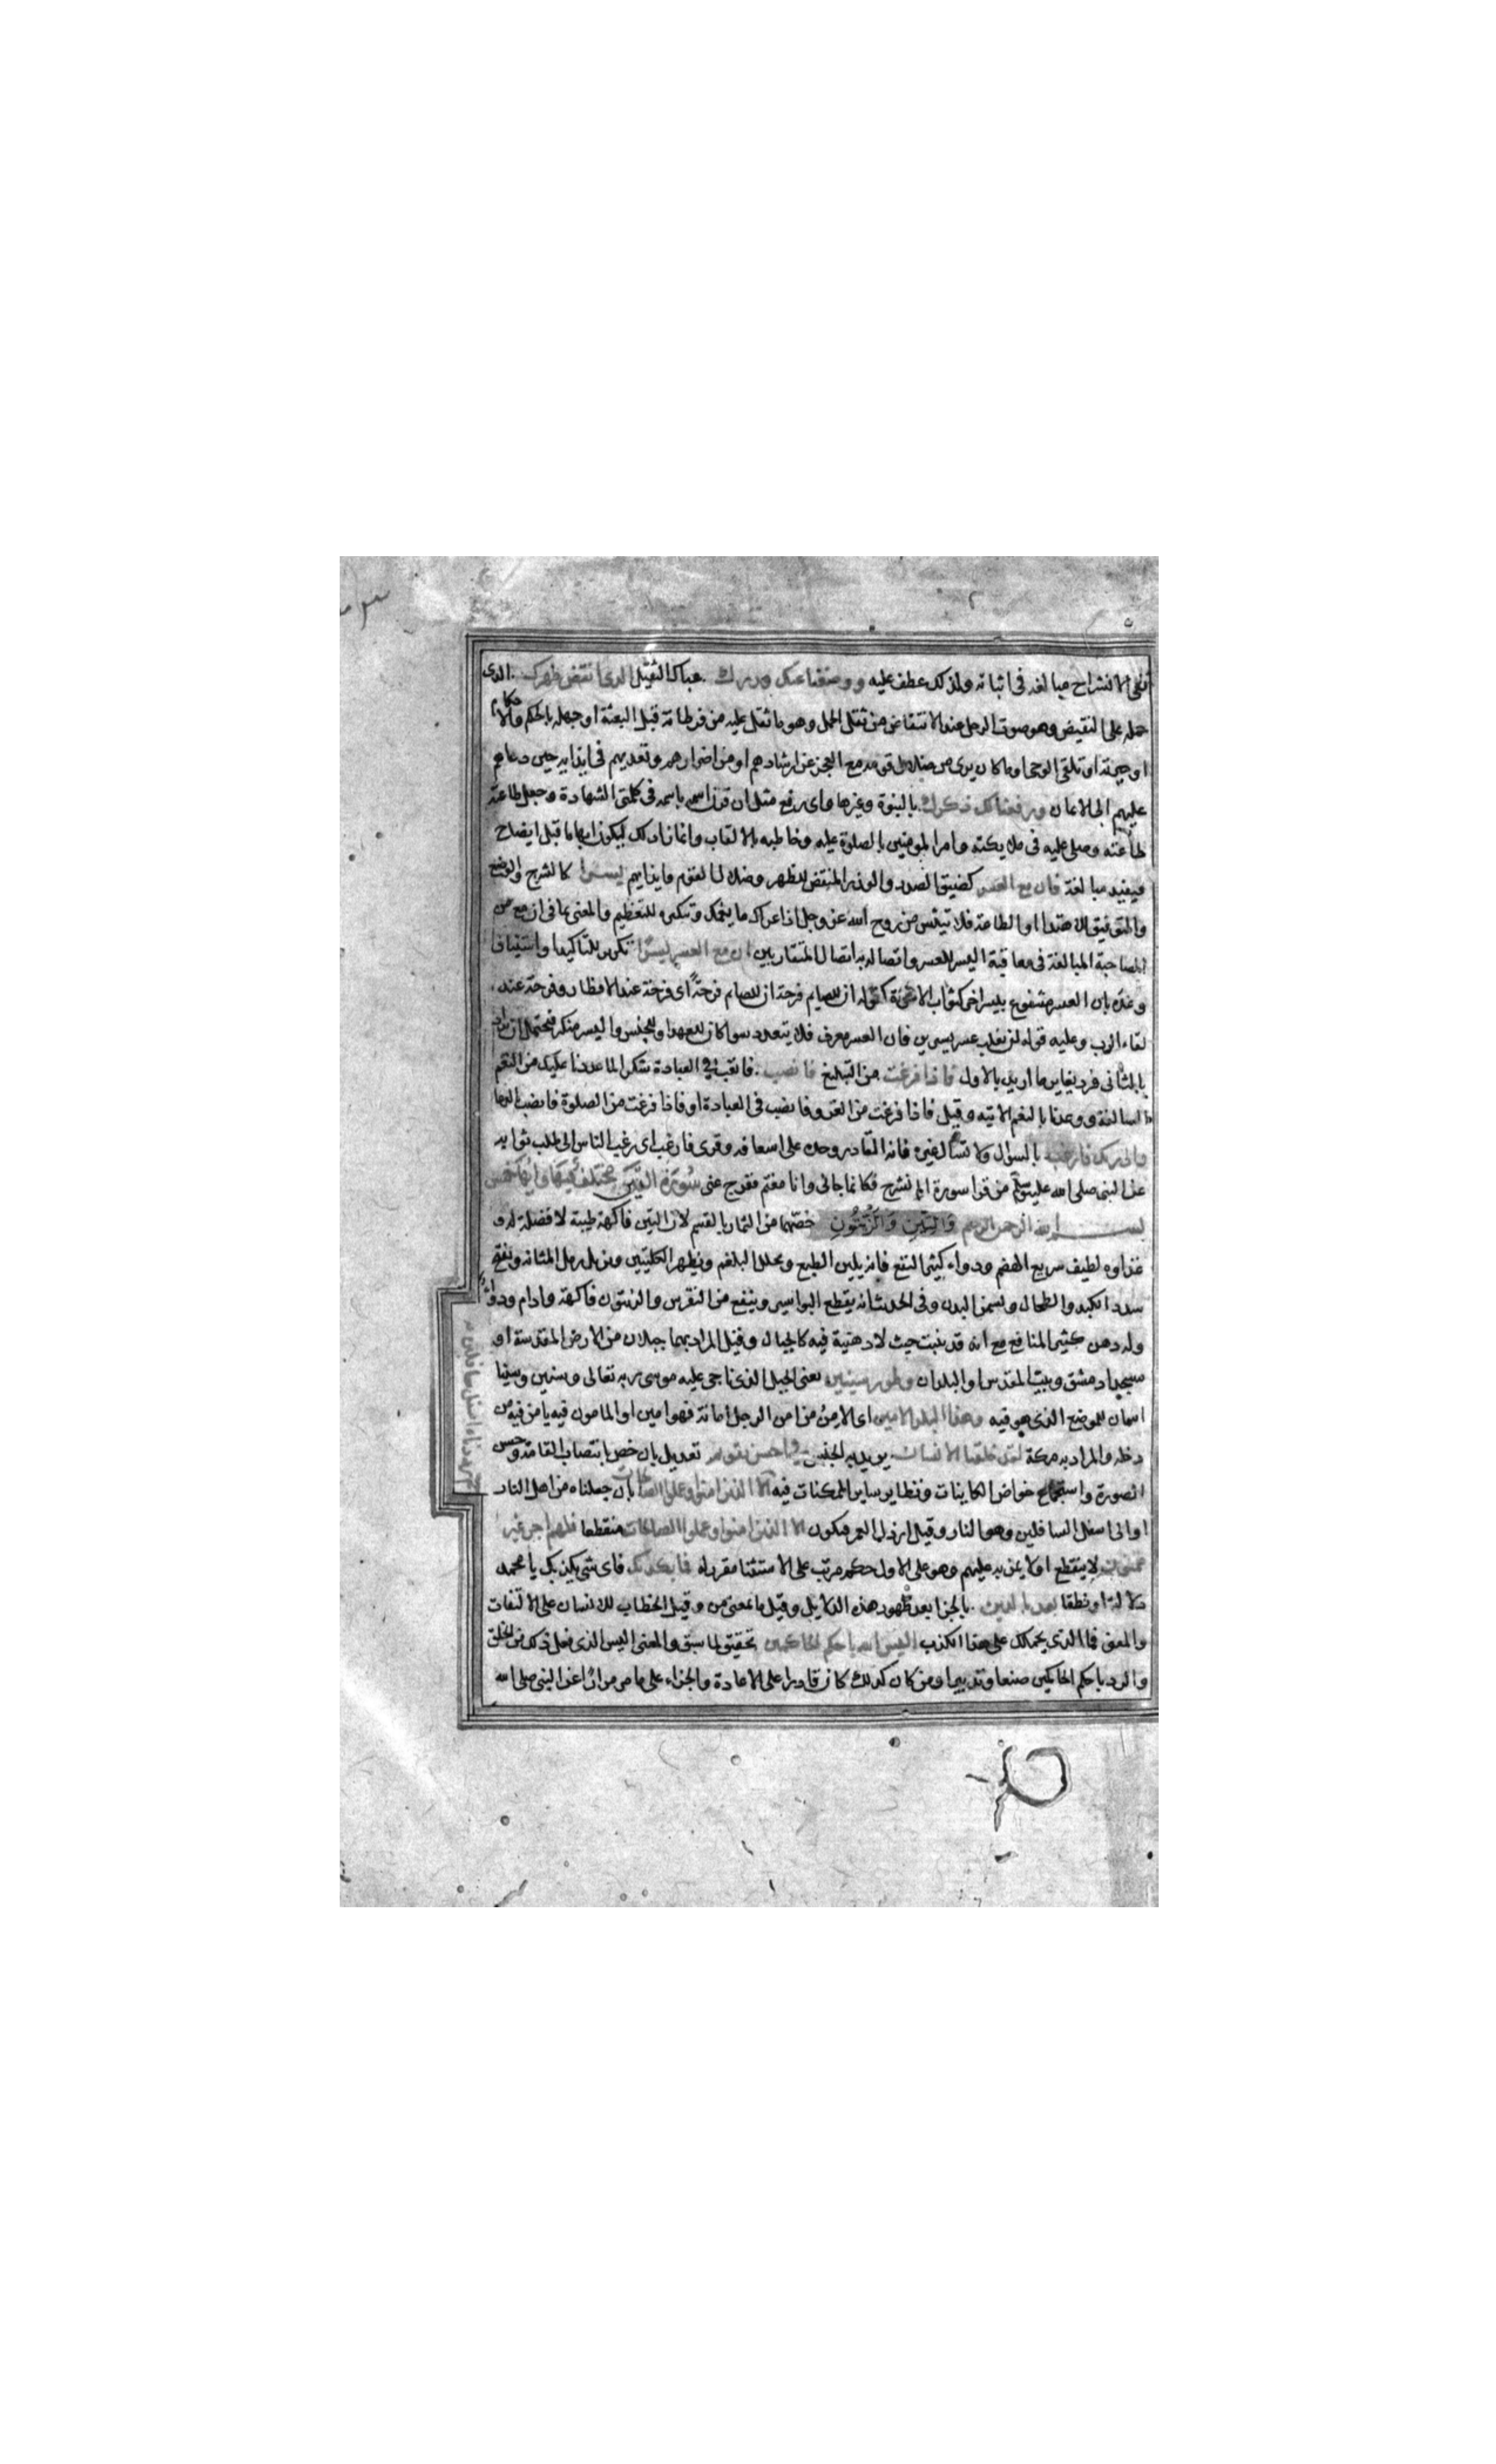 نفى الانشراح مبالغه فى اثباته ولذلك عطف عليه ووضعنا عنك وزرك عباك الثقيل الذى انقض ظهرك الذى
حمله على النقيض وهو صوت الرحل عند الانتقاض من ثقل الحمل وهو ما ثقل عليه من فرطاته قبل البعثة او جهله بالحكم والاحكام
او حيرته او تلقى الوحى او ما كان يرى من ضلال قومه مع العجز عن ارشادهم او من اصرارهم وتعديهم فى ايذايه حين دعاهم
عليهم الى الايمان ورفعنا لك ذكرك بالنبوة وغيرها واى رفع مثل ان قرن اسمه باسمه فى كلمتى الشهادة وجعل طاعته
طاعته وصلى عليه فى ملايكته وامر المومنين بالصلوة عليه وخاطبه بالالقاب وانما زاد لك ليكون ابهاما قبل ايضاح
فيفيد مبالغة فان مع العسر كضيق الصدر والوزر المنقض للظهر وضلال القوم وايذايهم يسرا كالشرح والوضع
والتوفيق للاهتدا والطاعة فلا تيئس من روح الله عز وجل اذا عراك ما يغمك وتنكيره للتعظيم والمعنى بما فى ان مع من
المصاحبة المبالغة فى معاقبة اليسر للعسر واتصاله به اتصال المتقاربين ان مع العسر يسرا تكرير للتاكيد او استيناف
وعده بان العسر مشفوع بيسر اخر كثواب الاخرة كقوله ان للصايم فرحة ان للصايم فرحةً اى فرحة عند الافطار وفرحة عند
لقاء الرب وعليه قوله لن يغلب عسر يسرين فان العسر معرف فلا يتعدد سوا كان للعهد او للجنس واليسر منكر فيحتمل ان يراد
بالثانى فرد يغاير ما اريد بالاول فاذا فرغت من التبليغ فانصب فاتعب فى العبادة شكرا لما عددنا عليك من النعم
السالفة ووعدنا بالنعم الاتيه وقيل فاذا فرغت من الغزو فانصب فى العبادة او فاذا فرغت من الصلوة فانصب بالدعا
والى ربك فارغب بالسؤال ولا تسأل غيره فانه القادر وحده على اسعافه وقرى فارغب اى رغب الناس الى طلب ثوابه
عن النبى صلى الله عليه وسلم من قرا سورة الم نشرح فكانما جانى وانا مغتم ففرج عنى سورة التين مختلف فيها وايها
بسم الله الرحمن الرحيم والتين والزيتون خصهما من الثمار بالقسم لان التين فاكهة طيبة لا فضلة له و
غذاوه لطيف سريع الهضم ودواء كثير النفع فانه يلين الطبع ويحلل البلغم ويطهر الكليتين ويزيل رمل المثانه ويفتح
سدد الكبد والطحال ويسمن البدن وفى الحديث انه يقطع البواسير وينفع من النقرس والزيتون فاكهة وادام ودواء
وله دهن كثير المنافع مع انه قد ينبت حيث لا دهنية فيه كالجبال وقيل المراد بهما جبلان من الارض المقدسة او
مسجدا دمشق وبيت المقدس او البلدان وطور سينين يعنى الجبل الذى ناجى عليه موسى ربه تعالى وسنين وسينا
اسمان للموضع الذى هو فيه وهذا البلد الامين اى الامن من امن الرجل امانة فهو امين او المامون فيه يامن فيه من
دخله والمراد به مكة لقد خلقنا الانسان يريد به الجنس فى احسن تقويم تعديل بان خص بانتصاب القامة وحسن
الصورة واستجماع خواص الكاينات ونظاير ساير الممكنات فيه الا الذين امنوا وعملوا الصالحات بان جعلناه من اهل النار
او الى اسفل السافلين وهو النار وقيل ارذل العمر فيكون الا الذين امنوا وعملوا الصالحات منقطعا فلهم اجر غير
ممنون لا ينقطع او لا يمن به عليهم وهو على الاول حكم مرتب على الاستثنا مقرر له فما يكذبك فاى شى يكذبك يا محمد
دلالة او نطقا بعد بالدين بالجزا بعد ظهور هذه الدلايل وقيل ما بمعنى من وقيل الخطاب للانسان على الالتفات
والمعنى فما الذى يحملك على هذا الكذب اليس الله باحكم الحاكمين تحقيق لما سبق والمعنى اليس الذى فعل ذلك من الخلق
والرد باحكم الحاكمين صنعا وتدبيرا ومن كان كذلك كان قادرا على الاعادة والجزاء على ما مر مرارا عن النبى صلى الله
ثم رددناه اسفل سافلين